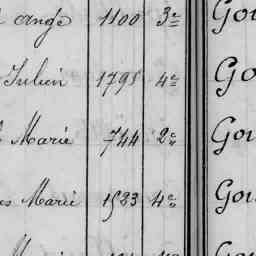 ange 1100 3e Gou
Julien 1795 4e Go
Marie 744 2e Gou
Marie 1523 4e Gou